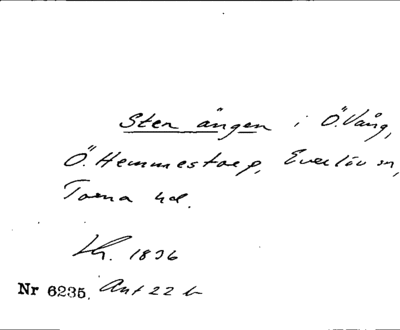 Sten ängen i Ö. Vång,
Ö. Hemmestorp, Everlöv sn,
Torna hd.
1836
Nr 6235. Avt 22 b